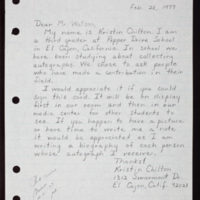 Feb. 28, 1977
Dear Mr. Watson,
My name is Kristin Chilton. I am
a third grader at Pepper Drive School
in El Cajon, California. In school we
have been studying about collecting
autographs. We chose to ask people
who have made a contribution in their
field.
I would appreciate it if you could
sign this card. It will be on display
first in our room and then in our
media center for other students to
see. If you happen to have a picture
or have time to write me a note
it would be appreciated as I am
writing a biography of each person
whose autograph I receive.
Thanks!
Kristin Chilton
El Cajon, Calif. 92021